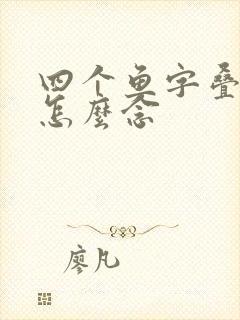 四个鱼字叠
怎麼念
廖凡